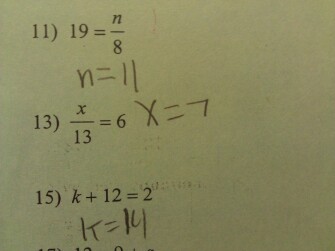 11) 19 = n/8
n = 11
13) x/13 = 6 x = 7
15) k + 12 = 2
k = 14